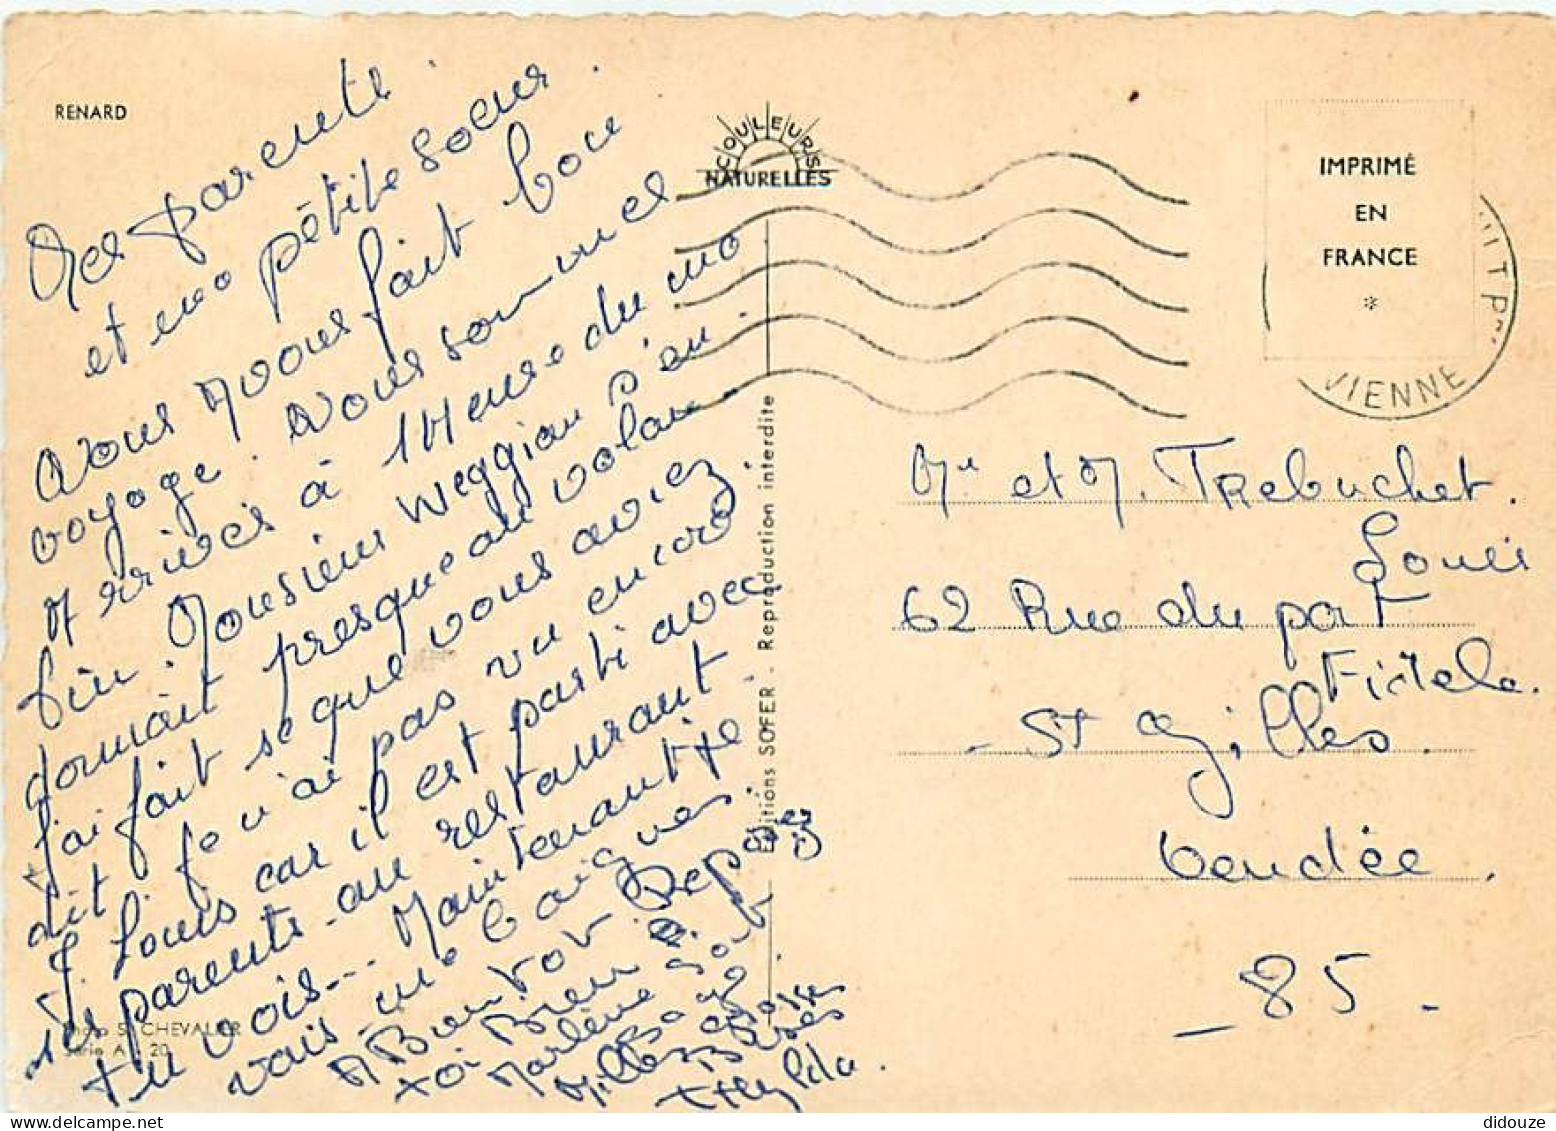 RENARD
Mes parents
et ma pétite soeur.
Nous Avons fait bon
voyage. Nous sommes
Arrivés à 1 Heure du ma
tin. Monsieur Weggian s'en
dormait presque au volan
J'ai fait se que vous aviez
dit je n'ai pas vu encore
J. Louis car il est parti avec
ses parents au restaurant.
tu vois... Maintenant je
vais me baigner.
A Bientot. Reposes
toi Bien
Marlène
Milles grosses
Bises
COULEURS
NATURELLES
IMPRIMÉ
EN
FRANCE
*
VIENNE
Editions SOFER - Reproduction interdite
Mr et M. Trebuchet.
Louis
62 Rue du port
Fidele.
- St Gilles.
Vendée.
- 85 -
Photo S. CHEVALIER
Série A - 20
didouze